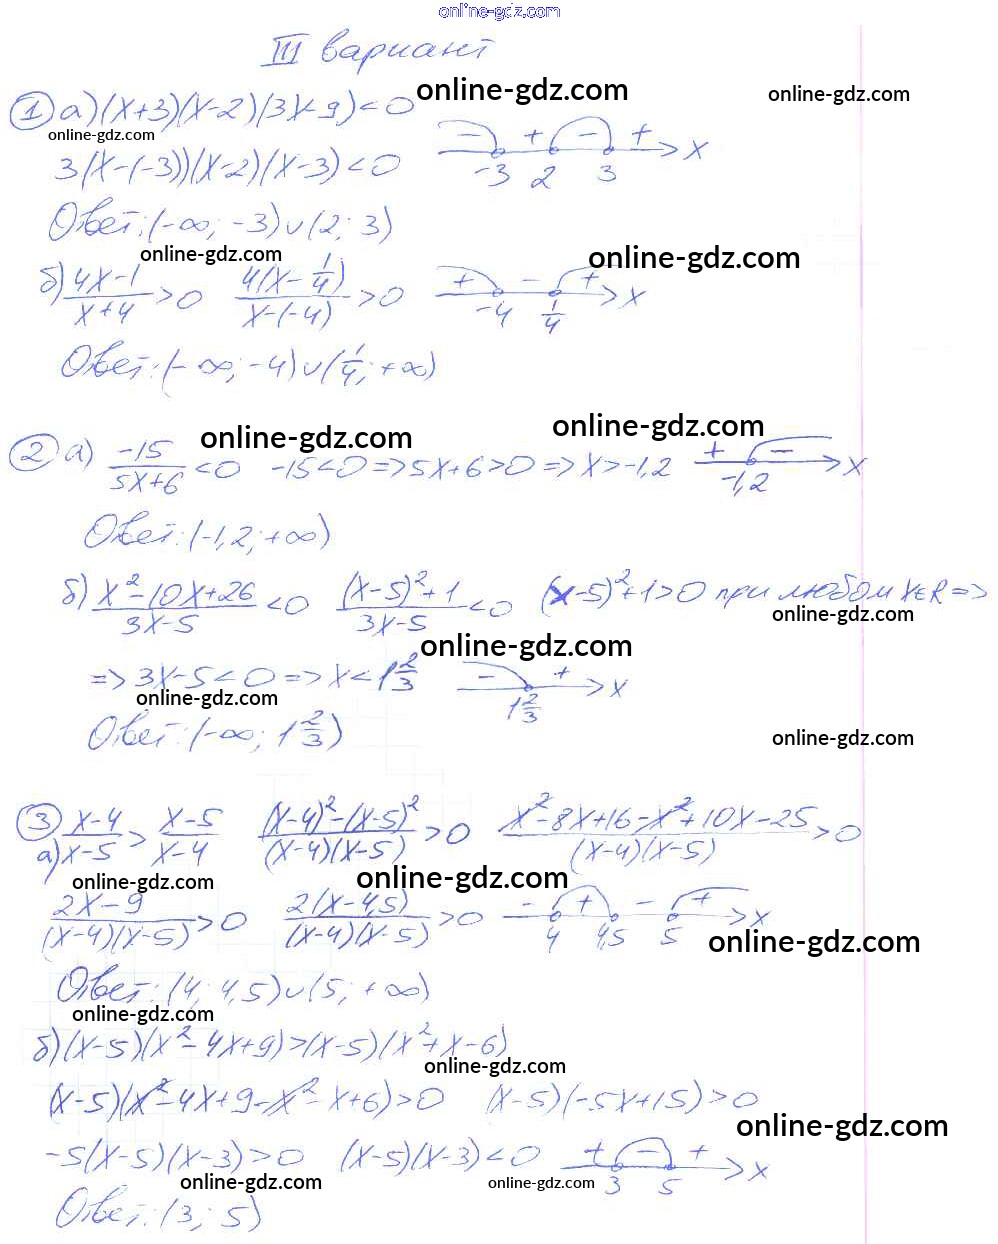 online-gdz.com
III вариант
1 а) (x+3)(x-2)(3x-9)<0 online-gdz.com online-gdz.com
online-gdz.com
3(x-(-3))(x-2)(x-3)<0 - + - + -3 2 3 x
Ответ: (-∞; -3)∪(2; 3)
online-gdz.com online-gdz.com
б) (4x-1)/(x+4)>0 4(x-1/4)/(x-(-4))>0 + - + -4 1/4 x
Ответ: (-∞; -4)∪(1/4; +∞)
online-gdz.com online-gdz.com
2 а) -15/(5x+6)<0 -15<0 => 5x+6>0 => x>-1,2 + - -1,2 x
Ответ: (-1,2; +∞)
б) (x²-10x+26)/(3x-5)<0 ((x-5)²+1)/(3x-5)<0 (x-5)²+1>0 при любом x∈R =>
online-gdz.com
online-gdz.com
=> 3x-5<0 => x<1 2/3 - + 1 2/3 x
online-gdz.com
Ответ: (-∞; 1 2/3)
online-gdz.com
3 а) (x-4)/(x-5) > (x-5)/(x-4) ((x-4)²-(x-5)²)/((x-4)(x-5))>0 (x²-8x+16-x²+10x-25)/((x-4)(x-5))>0
online-gdz.com online-gdz.com
(2x-9)/((x-4)(x-5))>0 2(x-4,5)/((x-4)(x-5))>0 - + - + 4 4,5 5 x
online-gdz.com
Ответ: (4; 4,5)∪(5; +∞)
online-gdz.com
б) (x-5)(x²-4x+9)>(x-5)(x²+x-6)
online-gdz.com
(x-5)(x²-4x+9-x²-x+6)>0 (x-5)(-5x+15)>0
online-gdz.com
-5(x-5)(x-3)>0 (x-5)(x-3)<0 + - + 3 5 x
online-gdz.com online-gdz.com
Ответ: (3; 5)